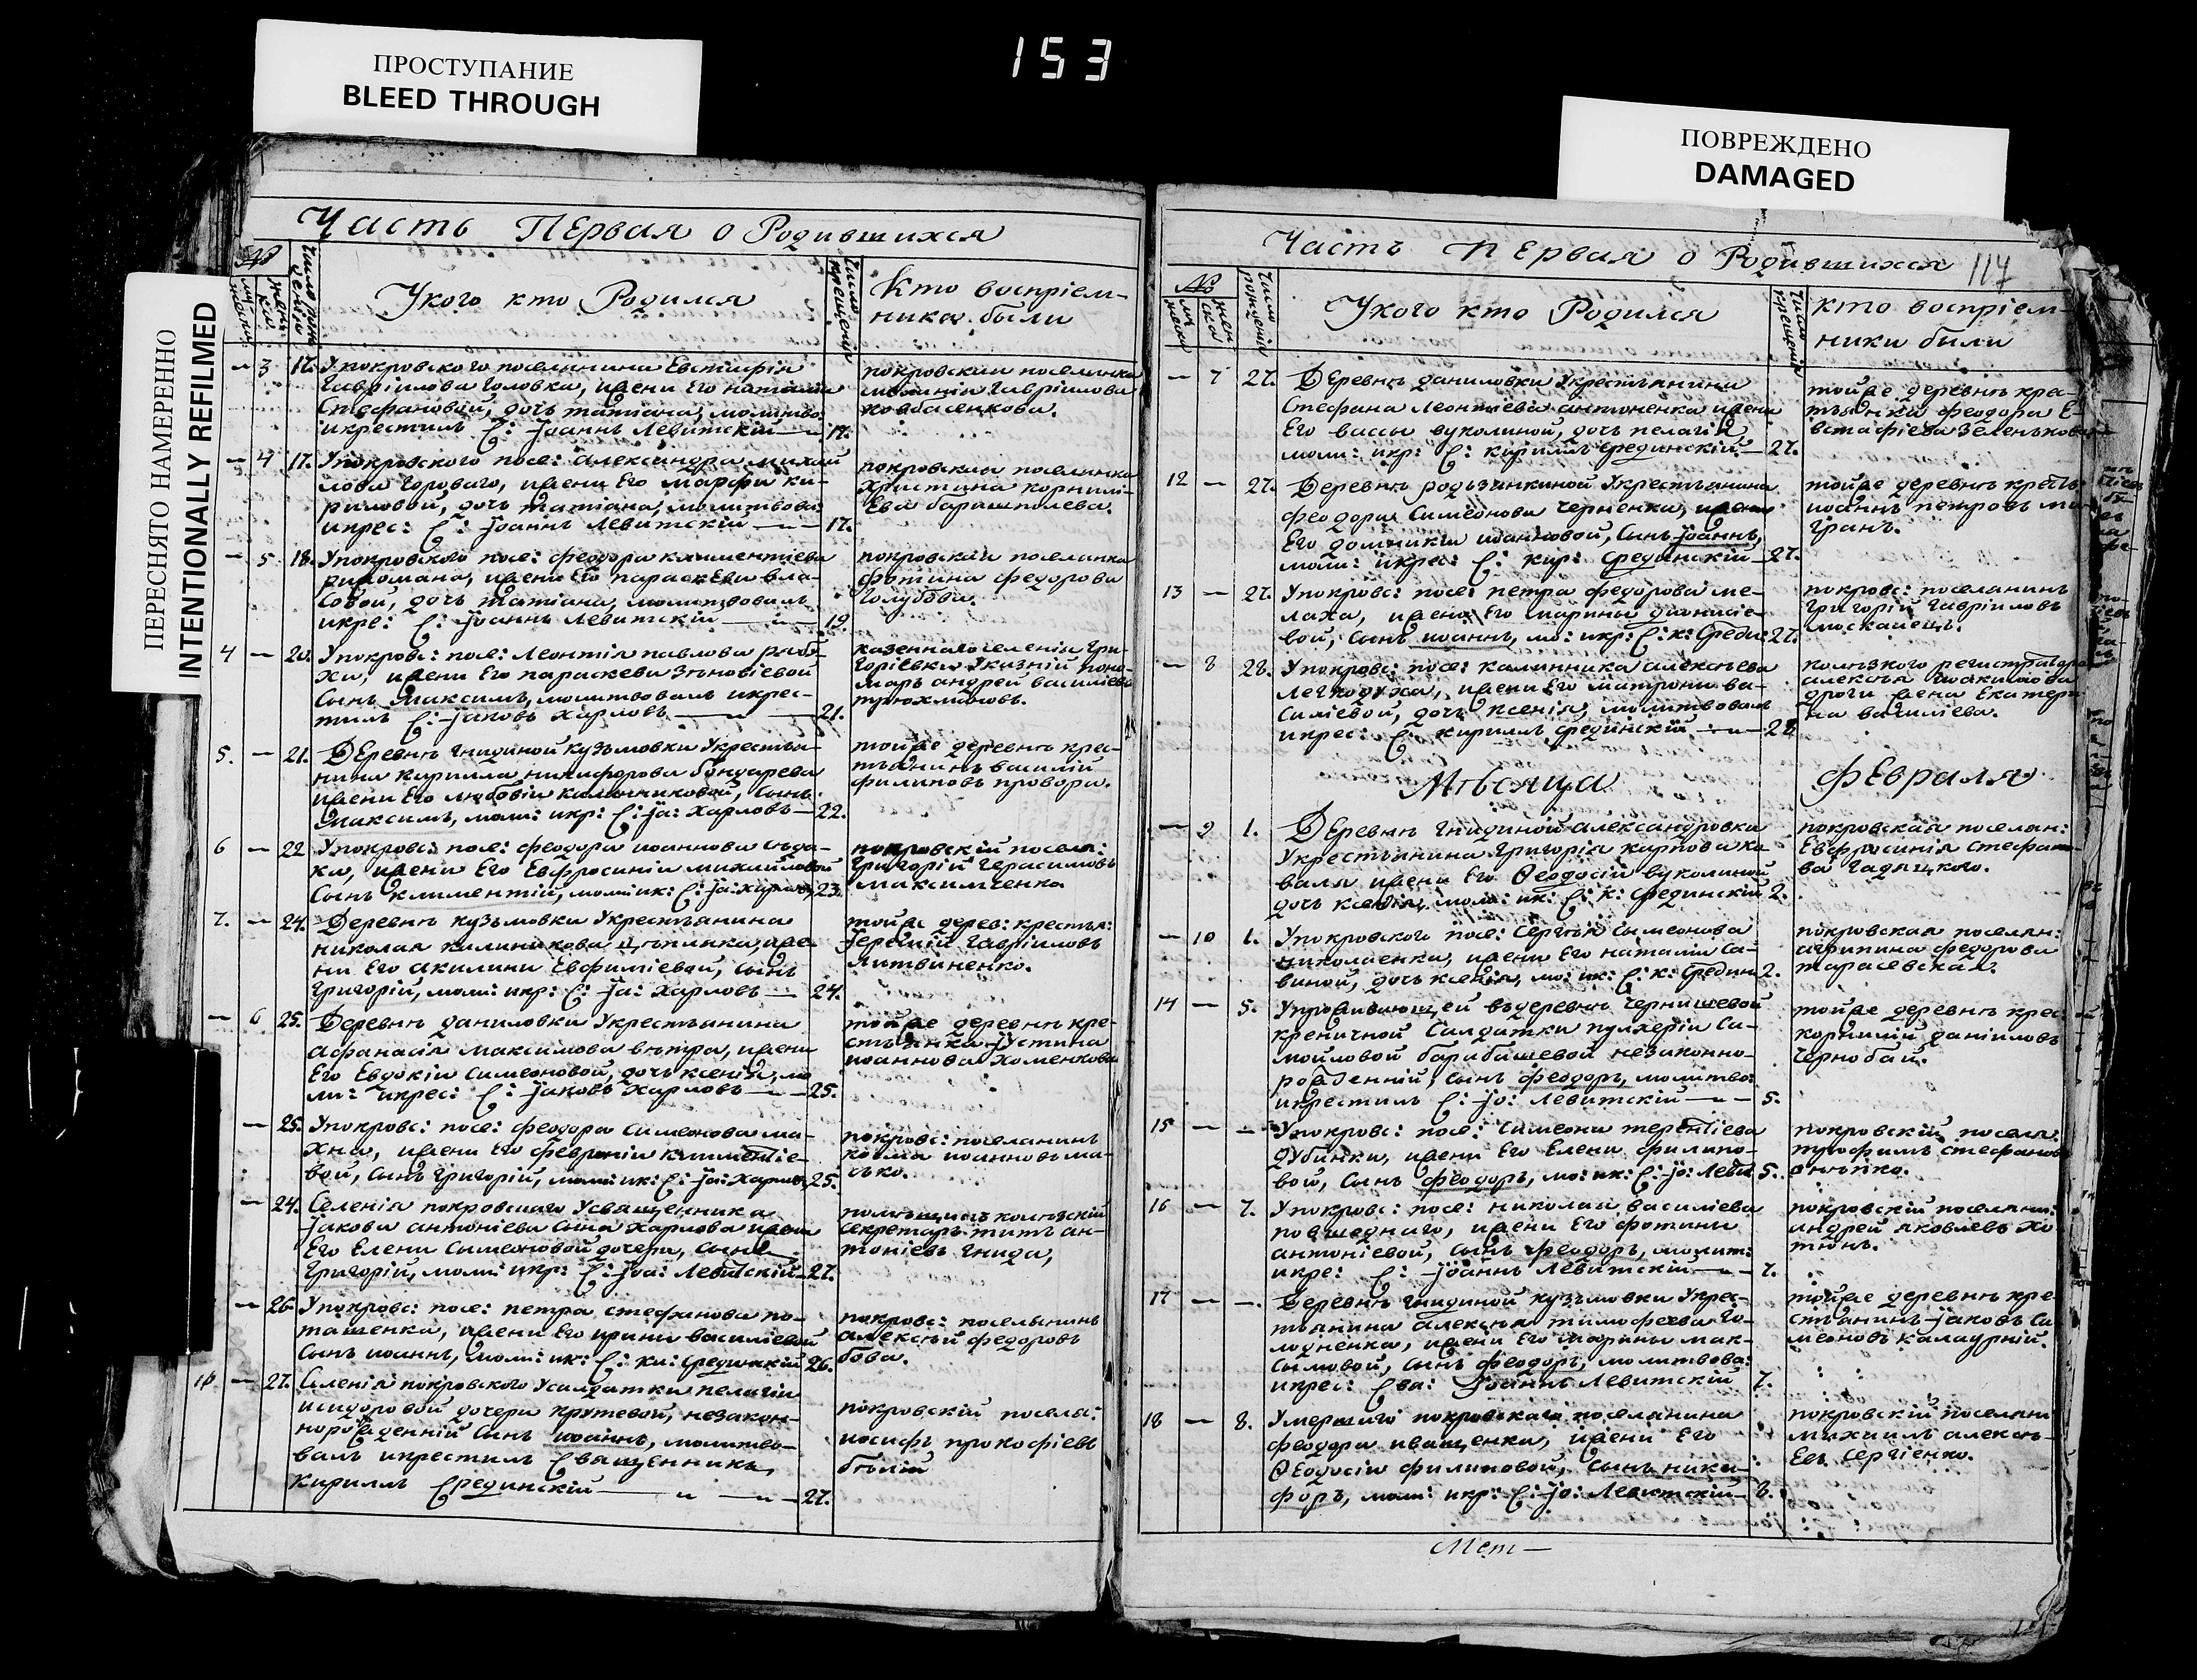 153
ПРОСТУПАНИЕ
BLEED THROUGH
ПОВРЕЖДЕНО
DAMAGED
ПЕРЕСНЯТО НАМЕРЕННО
INTENTIONALLY REFILMED
Часть Первая о Родившихся
№
Укого кто Родился
число крещенія
Кто воспріем-
ники были
3 17. Упокровского поселянина Евстафія
Гавріилова Головка, жени Его наталіи
Стефановой, дочь татіана, молитво:
икрестилъ С: Іоаннъ Левитскій 17.
покровская поселянка
Гавріилова
ковбасенкова.
4 17. Упокровского посе: александра михай
лова Горового, жени Его марфи ки-
риловой, дочь татіана, молитвова:
икрес: С: Іоаннъ Левитскій 17.
покровская поселянка
христина корнилі-
Ева баришполева
5 18. Упокровского посе: феодора климентіева
жени Его параскеви вла-
совой, дочь татіана, молитвовалъ
икре: С: Іоаннъ Левитскій 19.
покровская поселянка
фотина федорова
Голубова.
4 20. Упокровс: посе: Леонтія павлова
жени Его параскеви Зѣновіевой
Сынъ Максимъ, молитвовалъ икрес-
тилъ С: Іаковъ Харловъ 21.
казеннаго селенія Гри-
горіевки Указній поно-
марь андрей василіевъ
трюхмановъ.
5. 21. Деревнѣ Гнидиной кузьмовки Укрестья-
нина кирилла никифорова бондарева
жени Его любовіи калинниковой, Сынъ
Максимъ, моли: икр: С: Іа: Харловъ 22.
тойже деревнѣ крес-
тьянинъ василій
филиповъ провора.
6 22 Упокровс: посе: феодора иоаннова
ки, жени Его Евфросиніи михайловой
Сынъ климентій, моли: ик: С: Іа: Харлов 23.
покровскій поселя:
Григорій Герасимовъ
Максимченко.
7. 24. Деревнѣ кузьмовки Укрестьянина
николая калиникова же-
ни Его акилини Евфиміевой, сынъ
Григорій, моли: икр: С: Іа: Харловъ 24.
тойже дерев: крестья:
Іеремій Гавріиловъ
Литвиненко.
6 25. Деревнѣ даниловки Укрестьянина
Афанасія Максимова вѣтра, жени
Его Евдокіи Симеоновой, дочь ксенія, мо
ли: икрес: С: Іаковъ Харловъ 25.
тойже деревнѣ кре-
стьянка Іустина
иоаннова Хоменкова
25. Упокровс: посе: феодора Симеонова ма-
хна, жени Его февроніи климентіе-
вой, Сынъ Григорій, моли: ик: С: Іа: Харлов 25.
покровс: поселянинъ
козма иоанновъ ма-
24. Селенія покровского Усвященника
Іакова антоніева Сына Харлова жени
Его Елени Симеоновой дочери, Сынъ
Григорій, моли: икр: С: Іоа: Левитскій 27.
помѣщикъ колѣзскій
Секретарь титъ ан-
тоніевъ Гнида,
26. Упокровс: посе: петра стефанова по-
ташенка, жени Его ирини василіевой
Сынъ иоаннъ, моли: ик: С: ки: Срединскій 26.
покровс: поселянинъ
алексѣй федоровъ
бова.
10 27. Селенія покровского Усалдатки пелагіи
исидоровой дочери крутевой, незакон-
норожденній Сынъ иоаннъ, молитво-
валъ икрестилъ Священникъ
Кирилъ Срединскій 27.
покровскій поселя:
иосифъ прокофіевъ
бѣлій
Часть Первая о Родившихся 117
№
число рожденія
Укого кто Родился
число крещенія
кто воспріем-
ники были
7 27. Деревнѣ даниловки Укрестьянина
Стефана Леонтіева антоненка жени
Его вассы вуколиной, дочь пелагія
моли: икр: С: кирилъ Срединскій 27.
тойже деревнѣ крес-
тьянка феодора Е-
встафіева Зеленькова
12 27. Деревнѣ родзянкиной Укрестьянина
феодора Симеонова черненка, жени
Его домникіи иоанновой, Сынъ Іоаннъ,
моли: икрес: С: кир: Срединскій 27.
тойже деревнѣ крестья
иоаннъ петровъ ма
гранъ.
13 27. Упокровс: посе: петра федорова ме-
лаха, жени Его марины діонисіе-
вой, Сынъ иоаннъ, мо: икр: С: к: Среди: 27.
покровс: поселянинъ
Григорій Гавріиловъ
москалецъ.
8 28. Упокровс: посе: калинника алексѣева
Легкодуха, жени Его матрони ва-
силіевой, дочь ксенія, молитвовалъ
икрес: С: кирилъ Срединскій 28
колѣзкого регистратора
алексѣя
жена Екатери
на василіева.
Мѣсяца Февраля
9 1. Деревнѣ Гнидиной александровки
Укрестьянина Григорія карпова ко
валя жени Его Ѳеодосіи вуколиной
дочь ксенія, моли: ик: С: к: Срединскій 2.
покровская поселян:
Евфросинія стефано
ва Гадяцкого.
10 1. Упокровского посе: Сергѣя Сымеонова
николаенка, жени Его наталіи Са-
виной, дочь ксенія, мо: ик: С: к: Средин 2.
покровская поселян:
агрипина федорова
тарасевская.
14 5. Упроживающей въдеревнѣ чернишевой
креничной Салдатки пулхеріи Са-
мойловой барибашевой незаконно-
рожденній, Сынъ феодоръ, молитво:
икрестилъ С: Іо: Левитскій 5.
тойже деревнѣ крес:
корнилій даніиловъ
чернобай.
15 Упокровс: посе: Симеона терентіева
дубинки, жени Его Елени филипо-
вой, Сынъ феодоръ, мо: ик: С: Іо: Леви 5.
покровскій поселя:
трофимъ стефановъ
16 7. Упокровс: посе: николая василіева
повшеднаго, жени Его фотини
антоніевой, Сынъ феодоръ, молит:
икре: С: Іоаннъ Левитскій 7.
покровскій поселяни:
андрей яковлевъ хо-
тюнъ.
17 Деревнѣ Гнидиной кузьмовки Укрес-
тьянина алексѣя тимофеева Го-
лодненка, жени Его марины мак-
симовой, Сынъ феодоръ, молитвова:
икрес: Свя: Іоаннъ Левитскій 7.
тойже деревнѣ кре
стьянинъ Іаковъ Си
меоновъ калаурній.
18 8. Умершаго покровского поселянина
феодора иващенка, жени Его
Ѳеодосіи филиповой, Сынъ ники-
форъ, моли: икр: С: Іо: Левитскій 8.
покровскій поселяни
михаилъ алексѣ-
Евъ Сергіенко.
Мет—